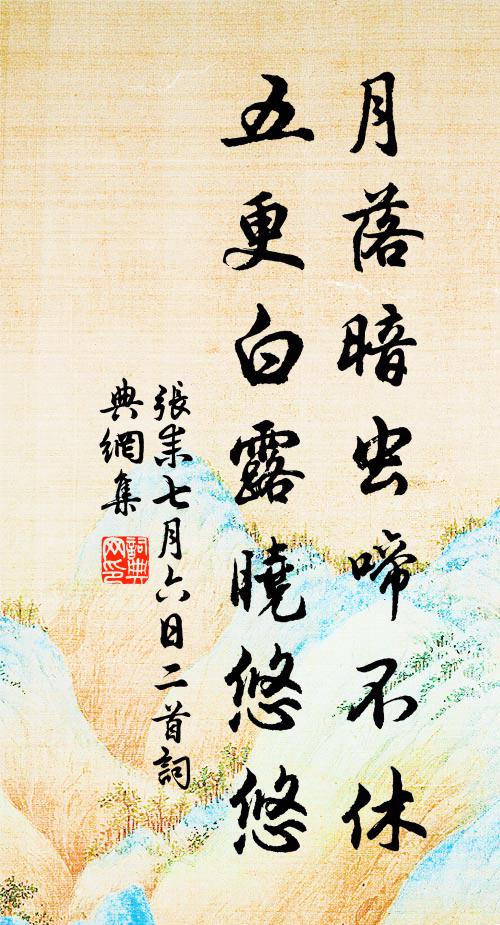 月落暗虫啼不休
五更白露曉悠悠
張耒七月六日二首詞
典網集
詞典
网印